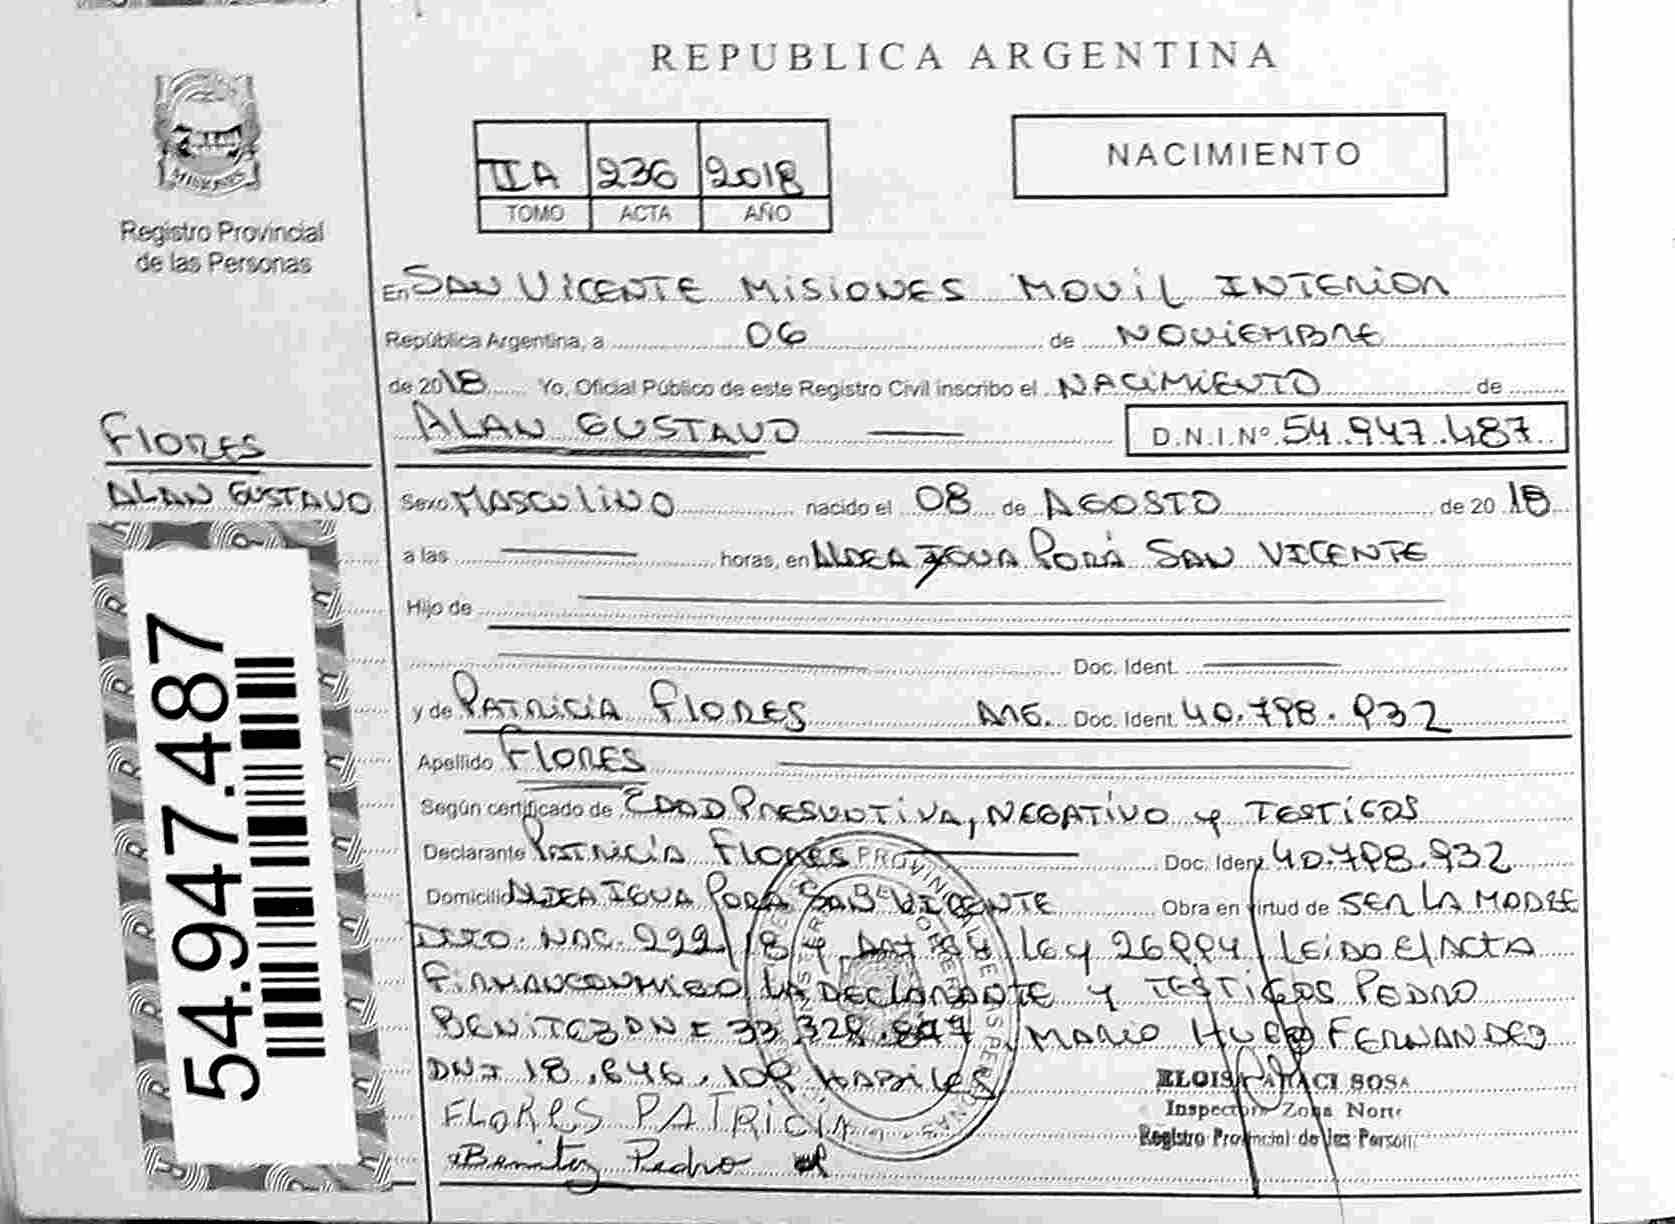 REPUBLICA ARGENTINA
NACIMIENTO
IIA 236 2018
TOMO ACTA AÑO
MISIONES
Registro Provincial
de las Personas
En SAN VICENTE MISIONES MOVIL INTERIOR
República Argentina, a 06 de NOVIEMBRE
de 2018 Yo, Oficial Público de este Registro Civil inscribo el NACIMIENTO de
ALAN GUSTAVO D.N.I.Nº 54.947.487
FLORES
ALAN GUSTAVO
Sexo MASCULINO nacido el 08 de AGOSTO de 2018
a las horas, en ALDEA IGUA PORÁ SAN VICENTE
Hijo de
Doc. Ident.
y de PATRICIA FLORES ARG. Doc. Ident. 40.798.932
Apellido FLORES
Según certificado de EDAD PRESUNTIVA, NEGATIVO y TESTIGOS
Declarante PATRICIA FLORES Doc. Ident. 40.798.932
Domicilio ALDEA IGUA PORÁ SAN VICENTE Obra en virtud de SER LA MADRE
DTO. NAC. 222/18 y ART 84 LEY 26994 LEIDO EL ACTA
FIRMAN CONMIGO LA DECLARANTE Y TESTIGOS PEDRO
BENITEZ DNI 33.328. MARIO HUGO FERNANDEZ
DNI 18.646.109 HABILES
FLORES PATRICIA
Benitez Pedro
SOSA
Inspector Zona Norte
Registro Provincial de las Person
54.947.487